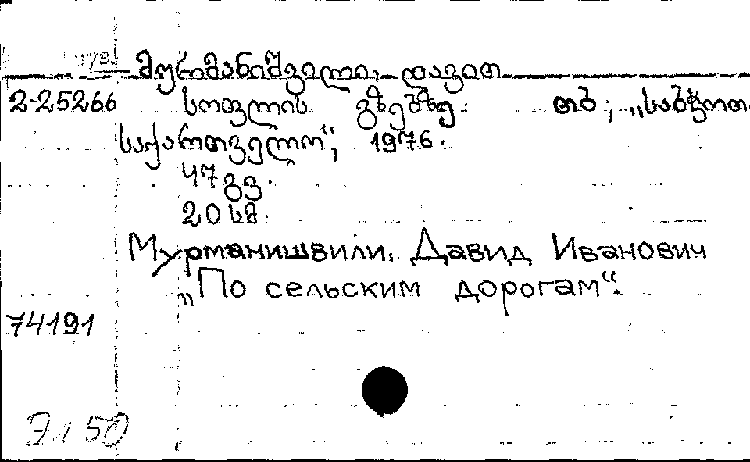 მურმანიშვილი, დავით
2-25266 სოფლის გზებზე. თბ; „საბჭოთა
საქართველო“, 1976.
47 გვ.
20 სმ.
Мурманишвили, Давид Иванович
„По сельским дорогам“.
74191
Эл 50